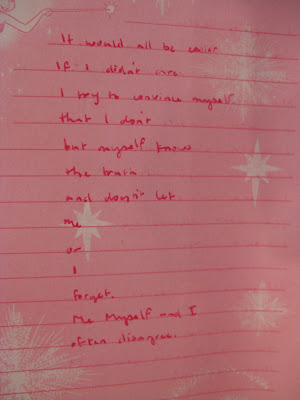 It would all be easier
If I didn't care.
I try to convince myself
that I don't...
but myself knows
the truth...
and doesn't let
me
or
I
forget.
Me Myself and I
often disagree.